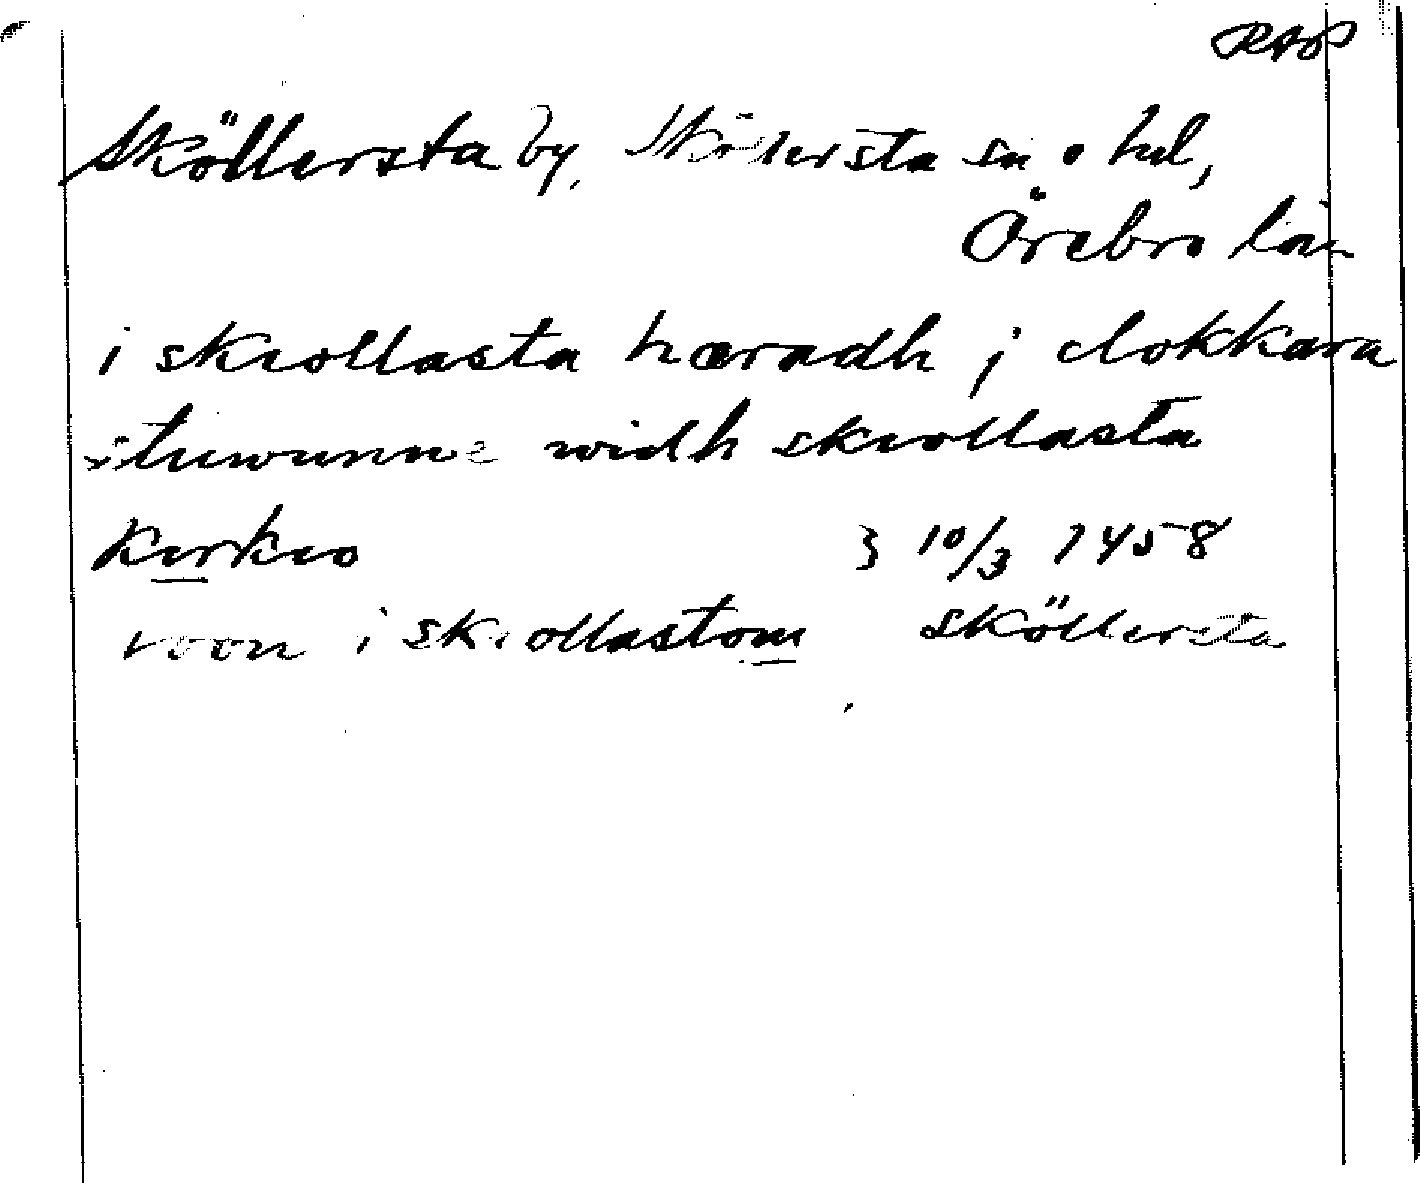 RAP
Sköllersta by, Sköllersta sn o hd,
Örebro län
i skiollasta hæradh j clokkara
stuwunne widh skiollasta
kirkio 3 10/3 1458
roon i skiollastom Sköllersta